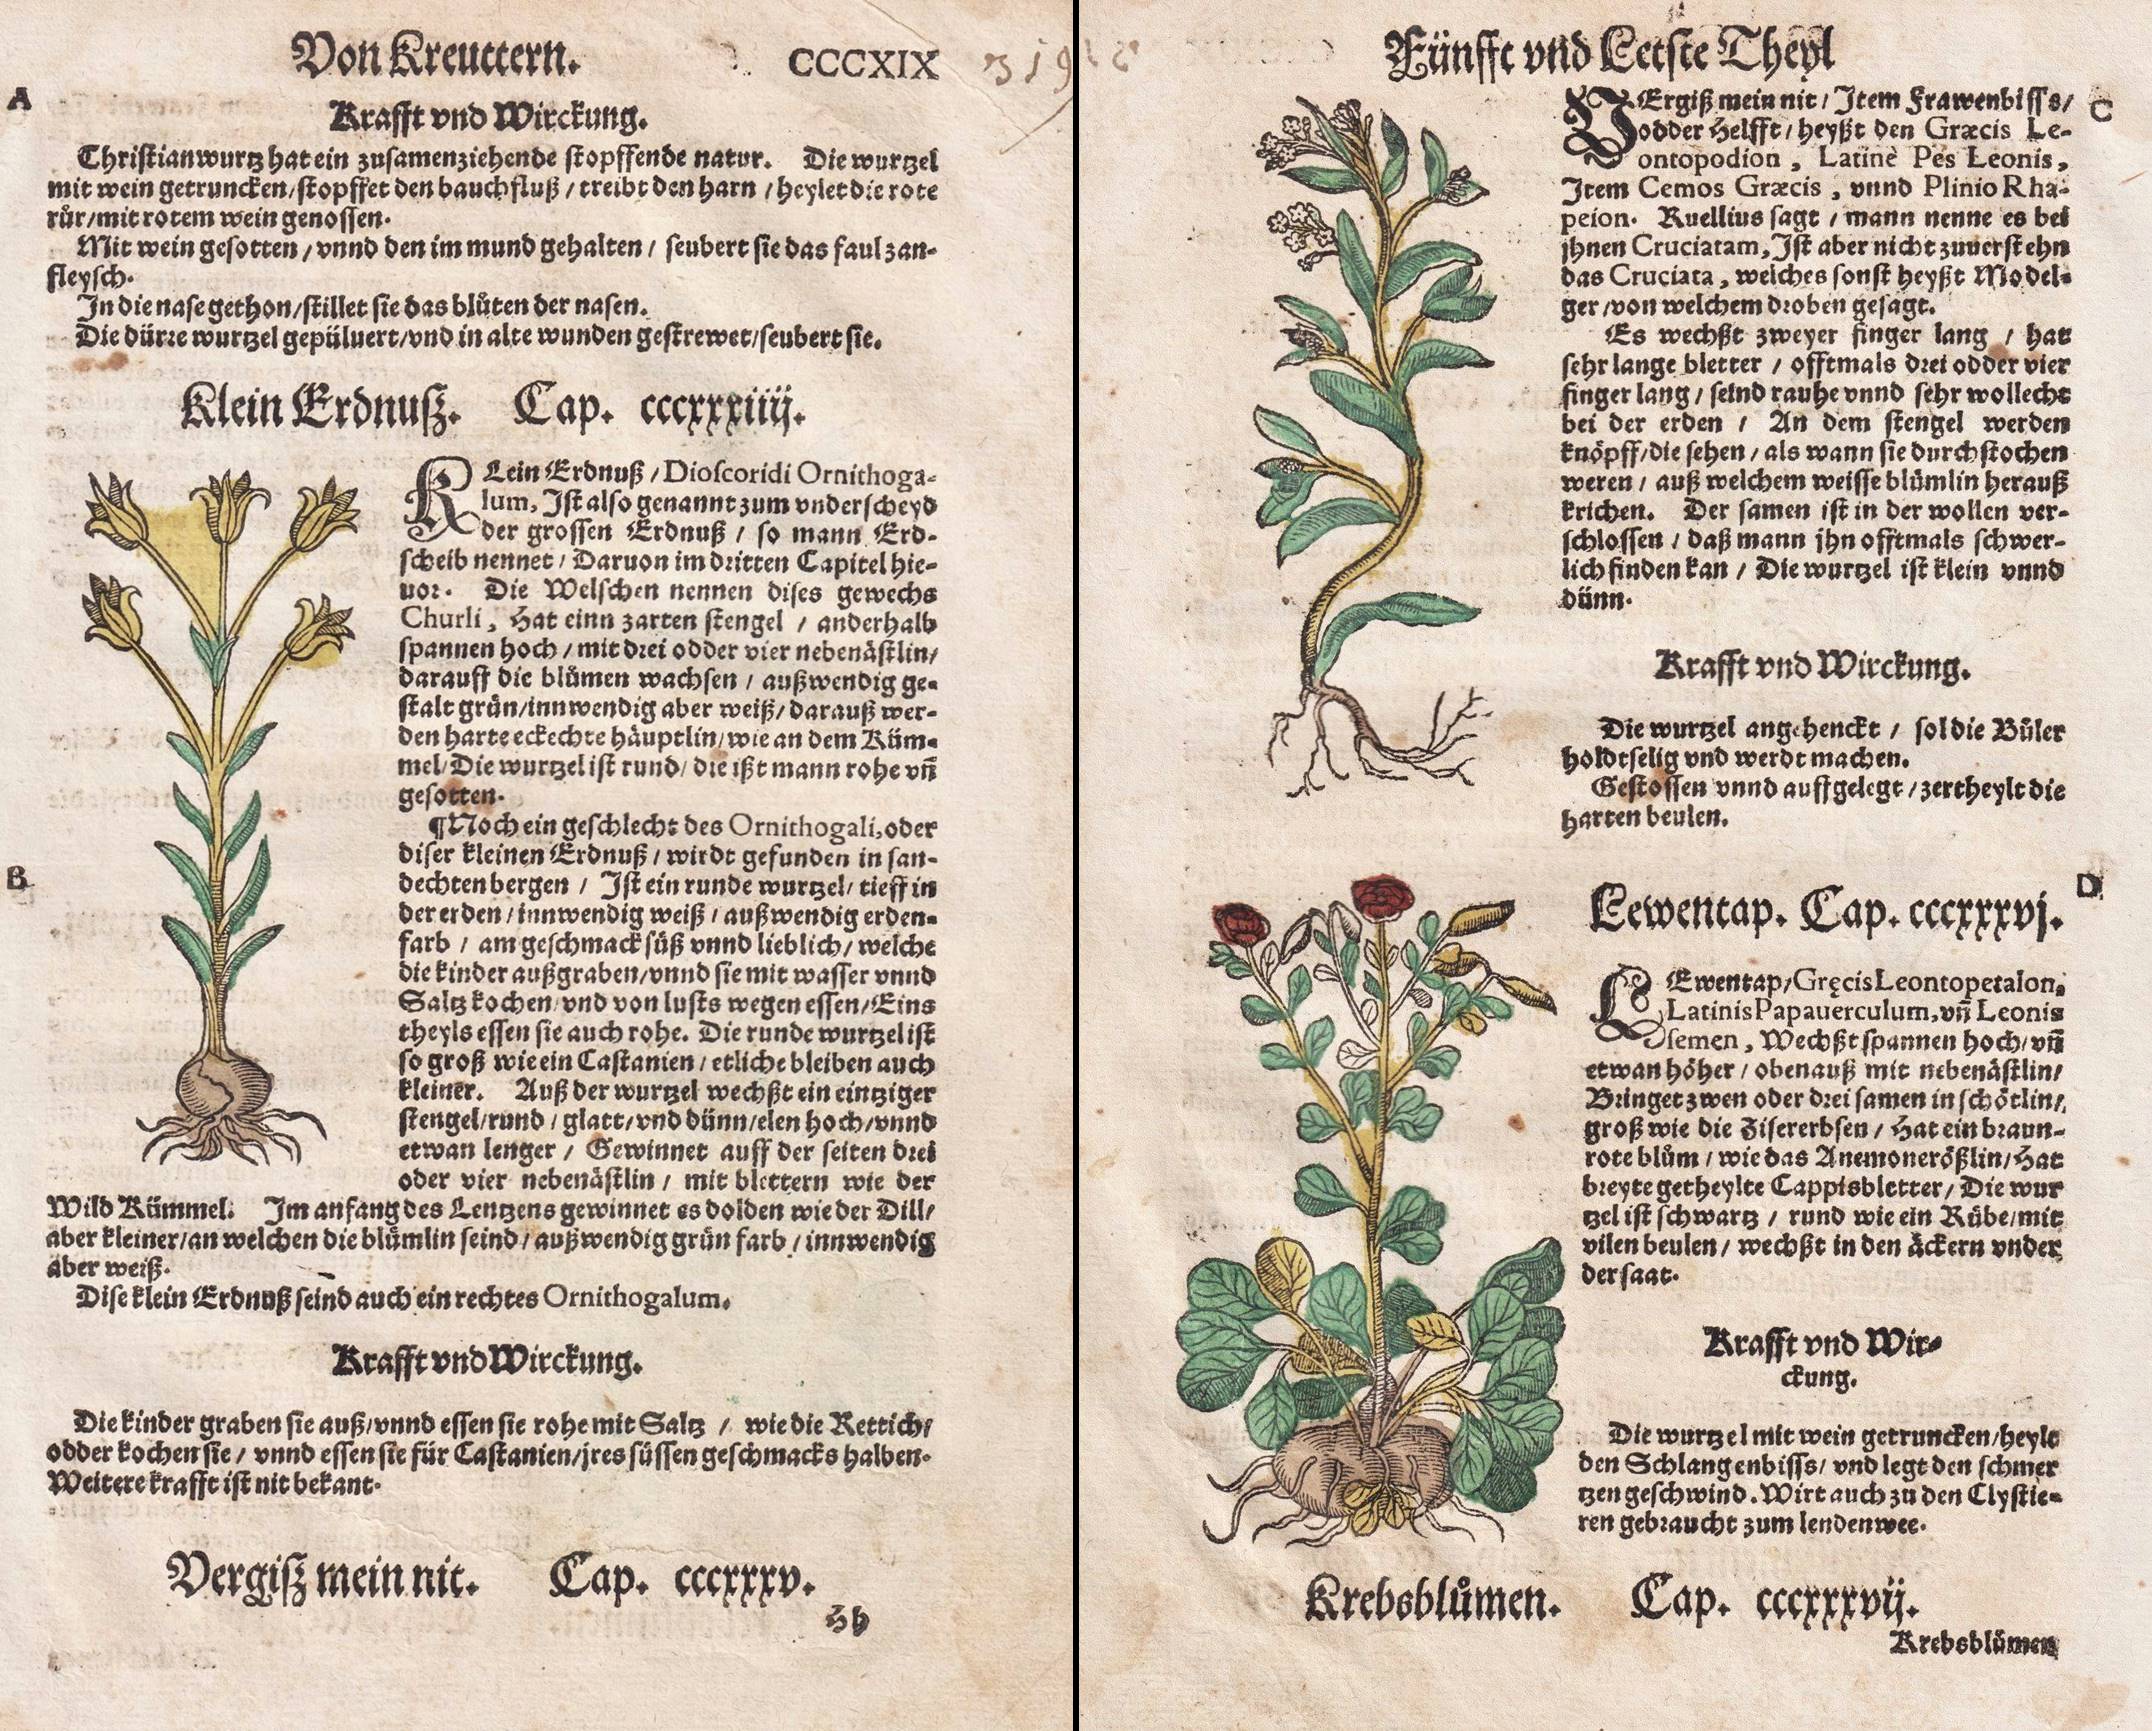 Von Kreuttern. CCCXIX 319
A
Krafft vnd Wirckung.
Christianwurtz hat ein zusamenziehende stopffende natur. Die wurtzel
mit wein getruncken/stopffet den bauchfluß / treibt den harn / heylet die rote
růr/mit rotem wein genossen.
Mit wein gesotten / vnnd den im mund gehalten / seubert sie das faul zan-
fleysch.
In die nase gethon/stillet sie das blůten der nasen.
Die dürre wurtzel gepüluert/vnd in alte wunden gestrewet/seubert sie.
Klein Erdnusz. Cap. cccxxxiiij.
KLein Erdnuß / Dioscoridi Ornithoga-
lum, Ist also genannt zum vnderscheyd
der grossen Erdnuß / so mann Erd-
scheib nennet / Daruon im dritten Capitel hie-
uor. Die Welschen nennen dises gewechs
Churli, Hat einn zarten stengel / anderhalb
spannen hoch / mit drei odder vier nebenästlin/
darauff die blůmen wachsen / außwendig ge-
stalt grün/innwendig aber weiß/darauß wer-
den harte eckechte häuptlin/wie an dem Küm-
mel/Die wurtzel ist rund/die ißt mann rohe vñ
gesotten.
¶Noch ein geschlecht des Ornithogali, oder
B
diser kleinen Erdnuß / wirdt gefunden in san-
dechten bergen / Ist ein runde wurtzel/ tieff in
der erden / innwendig weiß / außwendig erden-
farb / am geschmack süß vnnd lieblich / welche
die kinder außgraben/vnnd sie mit wasser vnnd
Saltz kochen/vnd von lusts wegen essen/Eins
theyls essen sie auch rohe. Die runde wurtzel ist
so groß wie ein Castanien / etliche bleiben auch
kleiner. Auß der wurtzel wechßt ein eintziger
stengel/rund / glatt/vnd dünn/elen hoch/vnnd
etwan lenger / Gewinnet auff der seiten drei
oder vier nebenästlin / mit blettern wie der
Wild Kümmel. Im anfang des Lentzens gewinnet es dolden wie der Dill/
aber kleiner/an welchen die blümlin seind / außwendig grün farb / innwendig
aber weiß.
Dise klein Erdnuß seind auch ein rechtes Ornithogalum.
Krafft vnd Wirckung.
Die kinder graben sie auß/vnnd essen sie rohe mit Saltz / wie die Rettich/
odder kochen sie / vnnd essen sie für Castanien/jres süssen geschmacks halben.
Weitere krafft ist nit bekant.
Vergisz mein nit. Cap. cccxxxv.
Hh
Fünfft vnd Letste Theyl
VErgiß mein nit / Item Frawenbiss/
C
odder Helfft / heyßt den Græcis Le-
ontopodion, Latinè Pes Leonis,
Item Cemos Græcis, vnnd Plinio Rha-
peion. Ruellius sagt / mann nenne es bei
jhnen Cruciatam, Ist aber nicht zuuerstehn
das Cruciata, welches sonst heyßt Model-
ger / von welchem droben gesagt.
Es wechßt zweyer finger lang / hat
sehr lange bletter / offtmals drei odder vier
finger lang / seind rauhe vnnd sehr wollecht
bei der erden / An dem stengel werden
knöpff/die sehen / als wann sie durchstochen
weren / auß welchem weisse blümlin herauß
krichen. Der samen ist in der wollen ver-
schlossen / daß mann jhn offtmals schwer-
lich finden kan / Die wurtzel ist klein vnnd
dünn.
Krafft vnd Wirckung.
Die wurtzel angehenckt / sol die Bůler
holdtselig vnd werdt machen.
Gestossen vnnd auffgelegt / zertheylt die
harten beulen.
D
Lewentap. Cap. cccxxxvj.
LEwentap/Gręcis Leontopetalon,
Latinis Papauerculum, vñ Leonis
semen, Wechßt spannen hoch/vñ
etwan höher / obenauß mit nebenästlin/
Bringet zwen oder drei samen in schötlin/
groß wie die Zisererbsen / Hat ein braun-
rote blům / wie das Anemonerößlin/Hat
breyte getheylte Cappisbletter / Die wur
tzel ist schwartz / rund wie ein Rübe/mit
vilen beulen / wechßt in den äckern vnder
der saat.
Krafft vnd Wir-
ckung.
Die wurtzel mit wein getruncken/heylt
den Schlangenbiss/ vnd legt den schmer
tzen geschwind. Wirt auch zu den Clystie-
ren gebraucht zum lendenwee.
Krebsblůmen. Cap. cccxxxvij.
Krebsblůmen